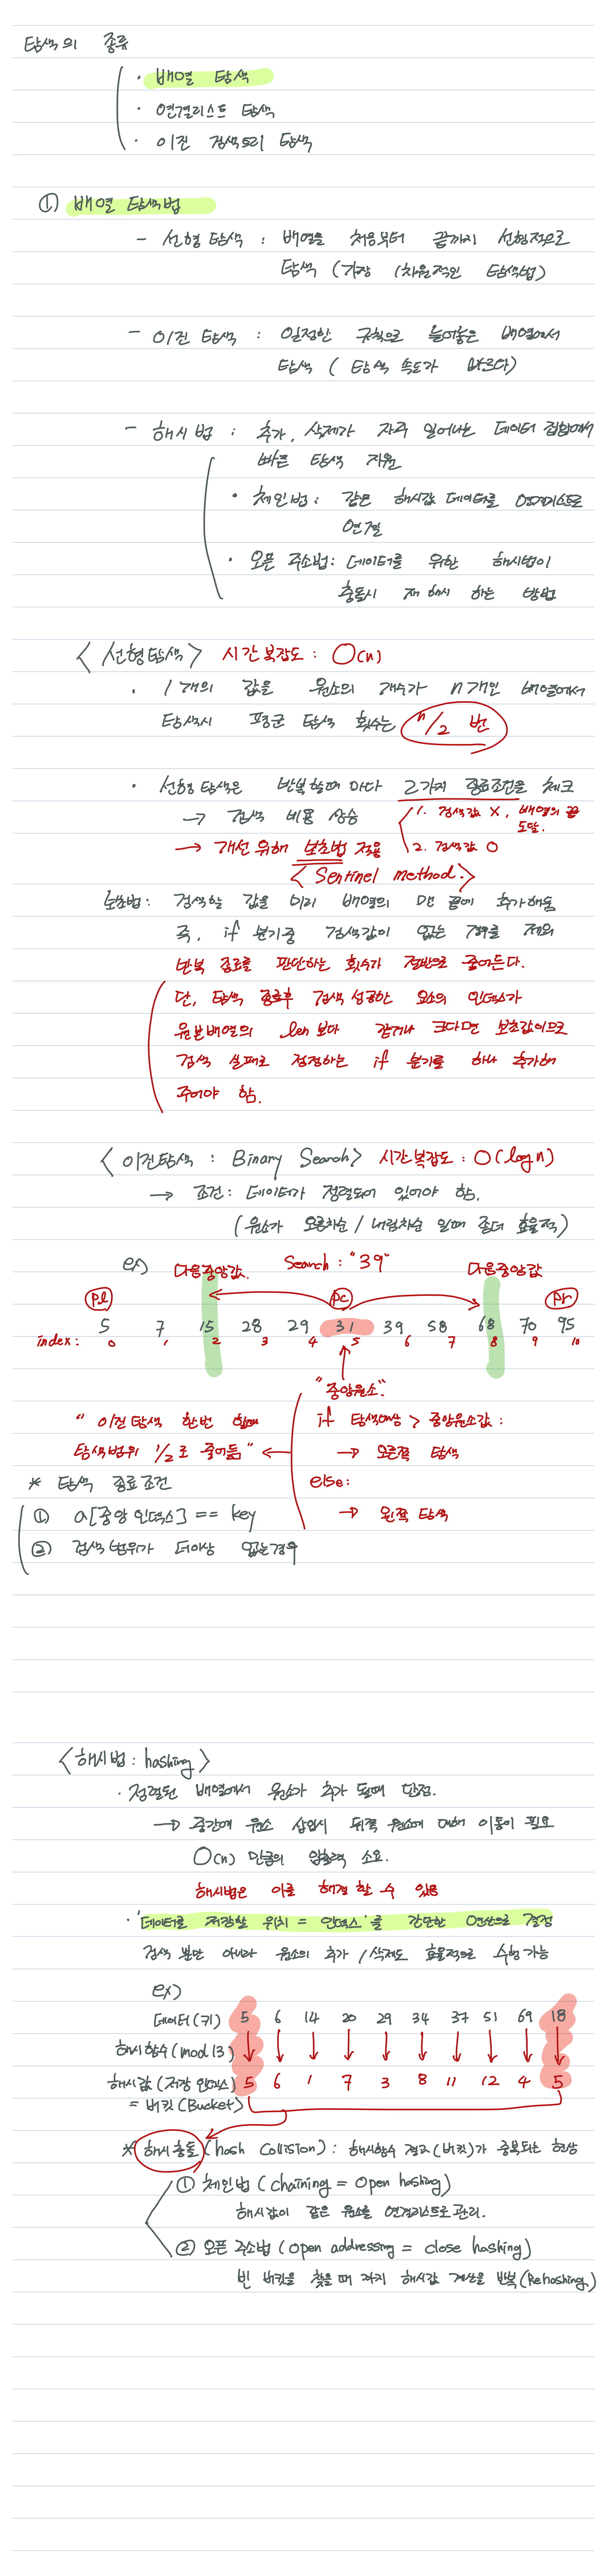 탐색의 종류
· 배열 탐색
· 연결리스트 탐색
· 이진 검색트리 탐색
① 배열 탐색법
- 선형 탐색 : 배열을 처음부터 끝까지 선형적으로
탐색 (가장 1차원적인 탐색법)
- 이진 탐색 : 일정한 규칙으로 늘어놓은 배열에서
탐색 ( 탐색 속도가 빠르다)
- 해시법 : 추가, 삭제가 자주 일어나는 데이터 집합에서
빠른 탐색 지원
· 체인법 : 같은 해시값 데이터를 연결리스트로
연결
· 오픈 주소법 : 데이터를 위한 해시법이
충돌시 재해시 하는 방법
< 선형탐색 > 시간복잡도 : O(n)
· 1개의 값을 원소의 개수가 n개인 배열에서
탐색시 평균 탐색 횟수는 n/2 번
· 선형탐색은 반복할때 마다 2가지 종료조건을 체크
→ 검색 비용 상승
1. 검색값 X, 배열의 끝 도달.
2. 검색값 O
→ 개선 위해 보초법 적용
< Sentinel method. >
보초법 : 검색할 값을 미리 배열의 맨 끝에 추가해둠
즉, if 분기중 검색값이 없는 경우를 제외
반복 종료를 판단하는 횟수가 절반으로 줄어든다.
단, 탐색 종료후 검색 성공한 요소의 인덱스가
원본배열의 len 보다 같거나 크다면 보초값이므로
검색 실패로 정정하는 if 분기를 하나 추가해
주어야 함.
< 이진탐색 : Binary Search > 시간복잡도 : O(log n)
→ 조건 : 데이터가 정렬되어 있어야 함.
(원소가 오름차순 / 내림차순 일때 좀더 효율적)
ex) 다음중앙값. Search : "39" 다음중앙값
pl pc pr
5 7 15 28 29 31 39 58 68 70 95
index : 0 1 2 3 4 5 6 7 8 9 10
"중앙원소"
" 이진탐색 한번 할때
탐색범위 1/2로 줄어듦 "
if 탐색대상 > 중앙원소값 :
→ 오른쪽 탐색
else :
→ 왼쪽 탐색
* 탐색 종료조건
① a[중앙 인덱스] == key
② 검색범위가 더이상 없는경우
< 해시법 : hashing >
· 정렬된 배열에서 원소가 추가 될때 단점.
→ 중간에 원소 삽입시 뒤쪽 원소에 대해 이동이 필요
O(n) 만큼의 입출력 소요.
해시법은 이를 해결 할 수 있음
· '데이터를 저장할 위치 = 인덱스'를 간단한 연산으로 결정
검색 뿐만 아니라 원소의 추가 / 삭제도 효율적으로 수행 가능
ex)
데이터(키) 5 6 14 20 29 34 37 51 69 18
해시함수(mod 13)
해시값 (저장 인덱스) 5 6 1 7 3 8 11 12 4 5
= 버킷 (Bucket)
* 해시충돌 (hash Collision) : 해시함수 결과(버킷)가 중복되는 현상
① 체인법 ( chaining = open hashing)
해시값이 같은 원소를 연결리스트로 관리.
② 오픈 주소법 ( open addressing = close hashing)
빈 버킷을 찾을 때 까지 해시값 계산을 반복 (Rehashing)